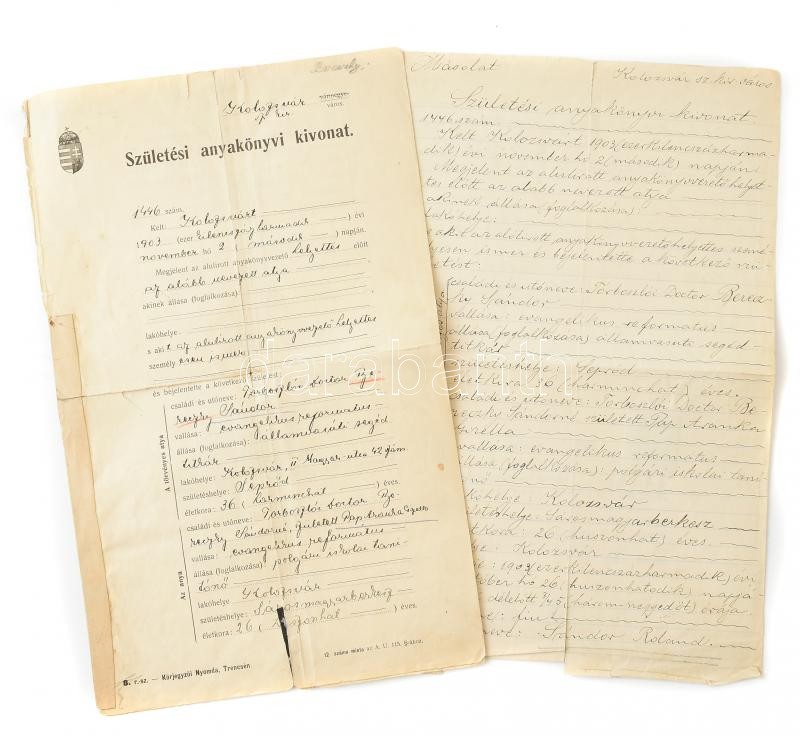 Kolozsvár vármegye
város.
Születési anyakönyvi kivonat.
1446 szám.
Kelt: Kolozsvárt
1903 (ezer kilenczszázharmadik) évi
november hó 2 (második) napján.
Megjelent az alulirott anyakönyvvezető helyettes előtt
az alább nevezett atya
akinek állása (foglalkozása):
lakóhelye:
s akit az alulirott anyakönyvvezető helyettes
személyesen ismer
és bejelentette a következő születést:
A törvényes atya
családi és utóneve: Torboszlói Doctor Be
reczky Sándor
vallása: evangelikus református
állása (foglalkozása): államvasúti segéd
titkár
lakóhelye: Kolozsvár, II Magyar-utca 42 szám
születéshelye: Sepród
életkora: 36 (harminchat) éves.
Az anya
családi és utóneve: Torboszlói Doctor Be
reczky Sándorné, született Pap Aranka Gizella
vallása: evangelikus református
állása (foglalkozása): polgári iskolai taní-
tónő
lakóhelye Kolozsvár
születéshelye: Sárosmagyarberkesz
életkora: 26 (huszonhat) éves.
B. r.-sz. — Körjegyzői Nyomda, Trencsén
12. számú minta az A. U. 115. §-ához.
Másolat
Kolozsvár sz. kir. város
Születési anyakönyvi kivonat.
1446 szám.
Kelt Kolozsvárt 1903 (ezerkilenczszázharma-
dik) évi november hó 2 (második) napján
Megjelent az alulirott anyakönyvvezető helyet-
tes előtt az alább nevezett atya
akinek állása (foglalkozása):
lakóhelye:
s akit az alulirott anyakönyvvezetőhelyettes szemé-
lyesen ismer és bejelentette a következő szü-
letést:
családi és utóneve: Torboszlói Doctor Berecz-
ky Sándor
vallása: evangelikus reformatus
állása (foglalkozása) államvasuti segéd-
titkár
születéshelye: Sepród
életkora 36 (harminchat) éves.
családi és utóneve: Torboszlói Doctor Be-
reczky Sándorné született Pap Aranka
Gizella
vallása: evangelikus reformatus
állása (foglalkozása): polgári iskolai taní
nő
lakóhelye: Kolozsvár
születéshelye: Sárosmagyarberkesz
életkora: 26 (huszonhat) éves.
Kolozsvár
1903 (ezerkilenczszázharmadik) évi
október hó 26 (huszonhatodik) napjá
délelőtt 3/4 5 (háromnegyedöt) órája
fiú
Sándor Roland.
darabanth